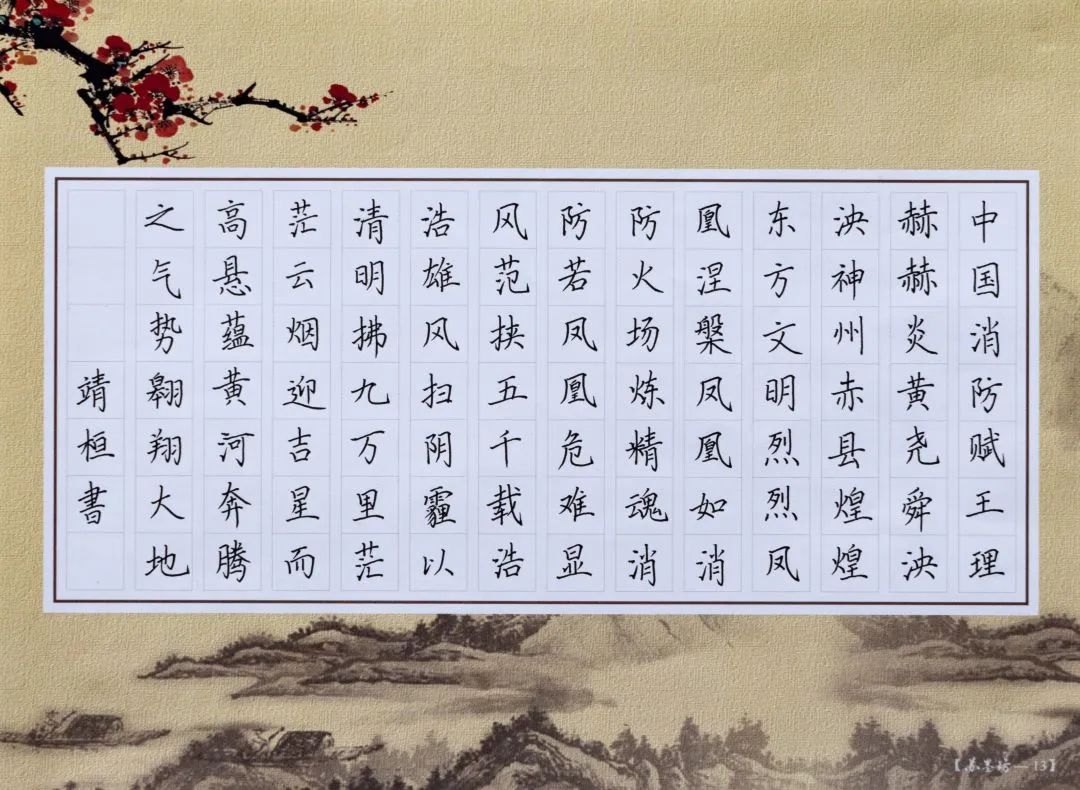 中国消防赋王理
赫赫炎黄尧舜泱
泱神州赤县煌煌
东方文明烈烈凤
凰涅槃凤凰如消
防火场炼精魂消
防若凤凰危难显
风范挟五千载浩
浩雄风扫阴霾以
清明拂九万里茫
茫云烟迎吉星而
高悬蕴黄河奔腾
之气势翱翔大地
靖桓書